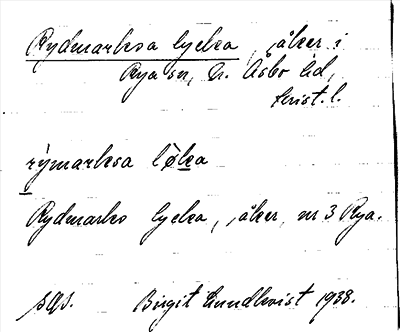 Rydmarksa lycka, åker i
Rya sn, N. Åsbo hd,
Krist. l.
rýmarksa lø̀ka
Rydmarks lycka, åker, nr 3 Rya.
Birgit Lundkvist 1938.